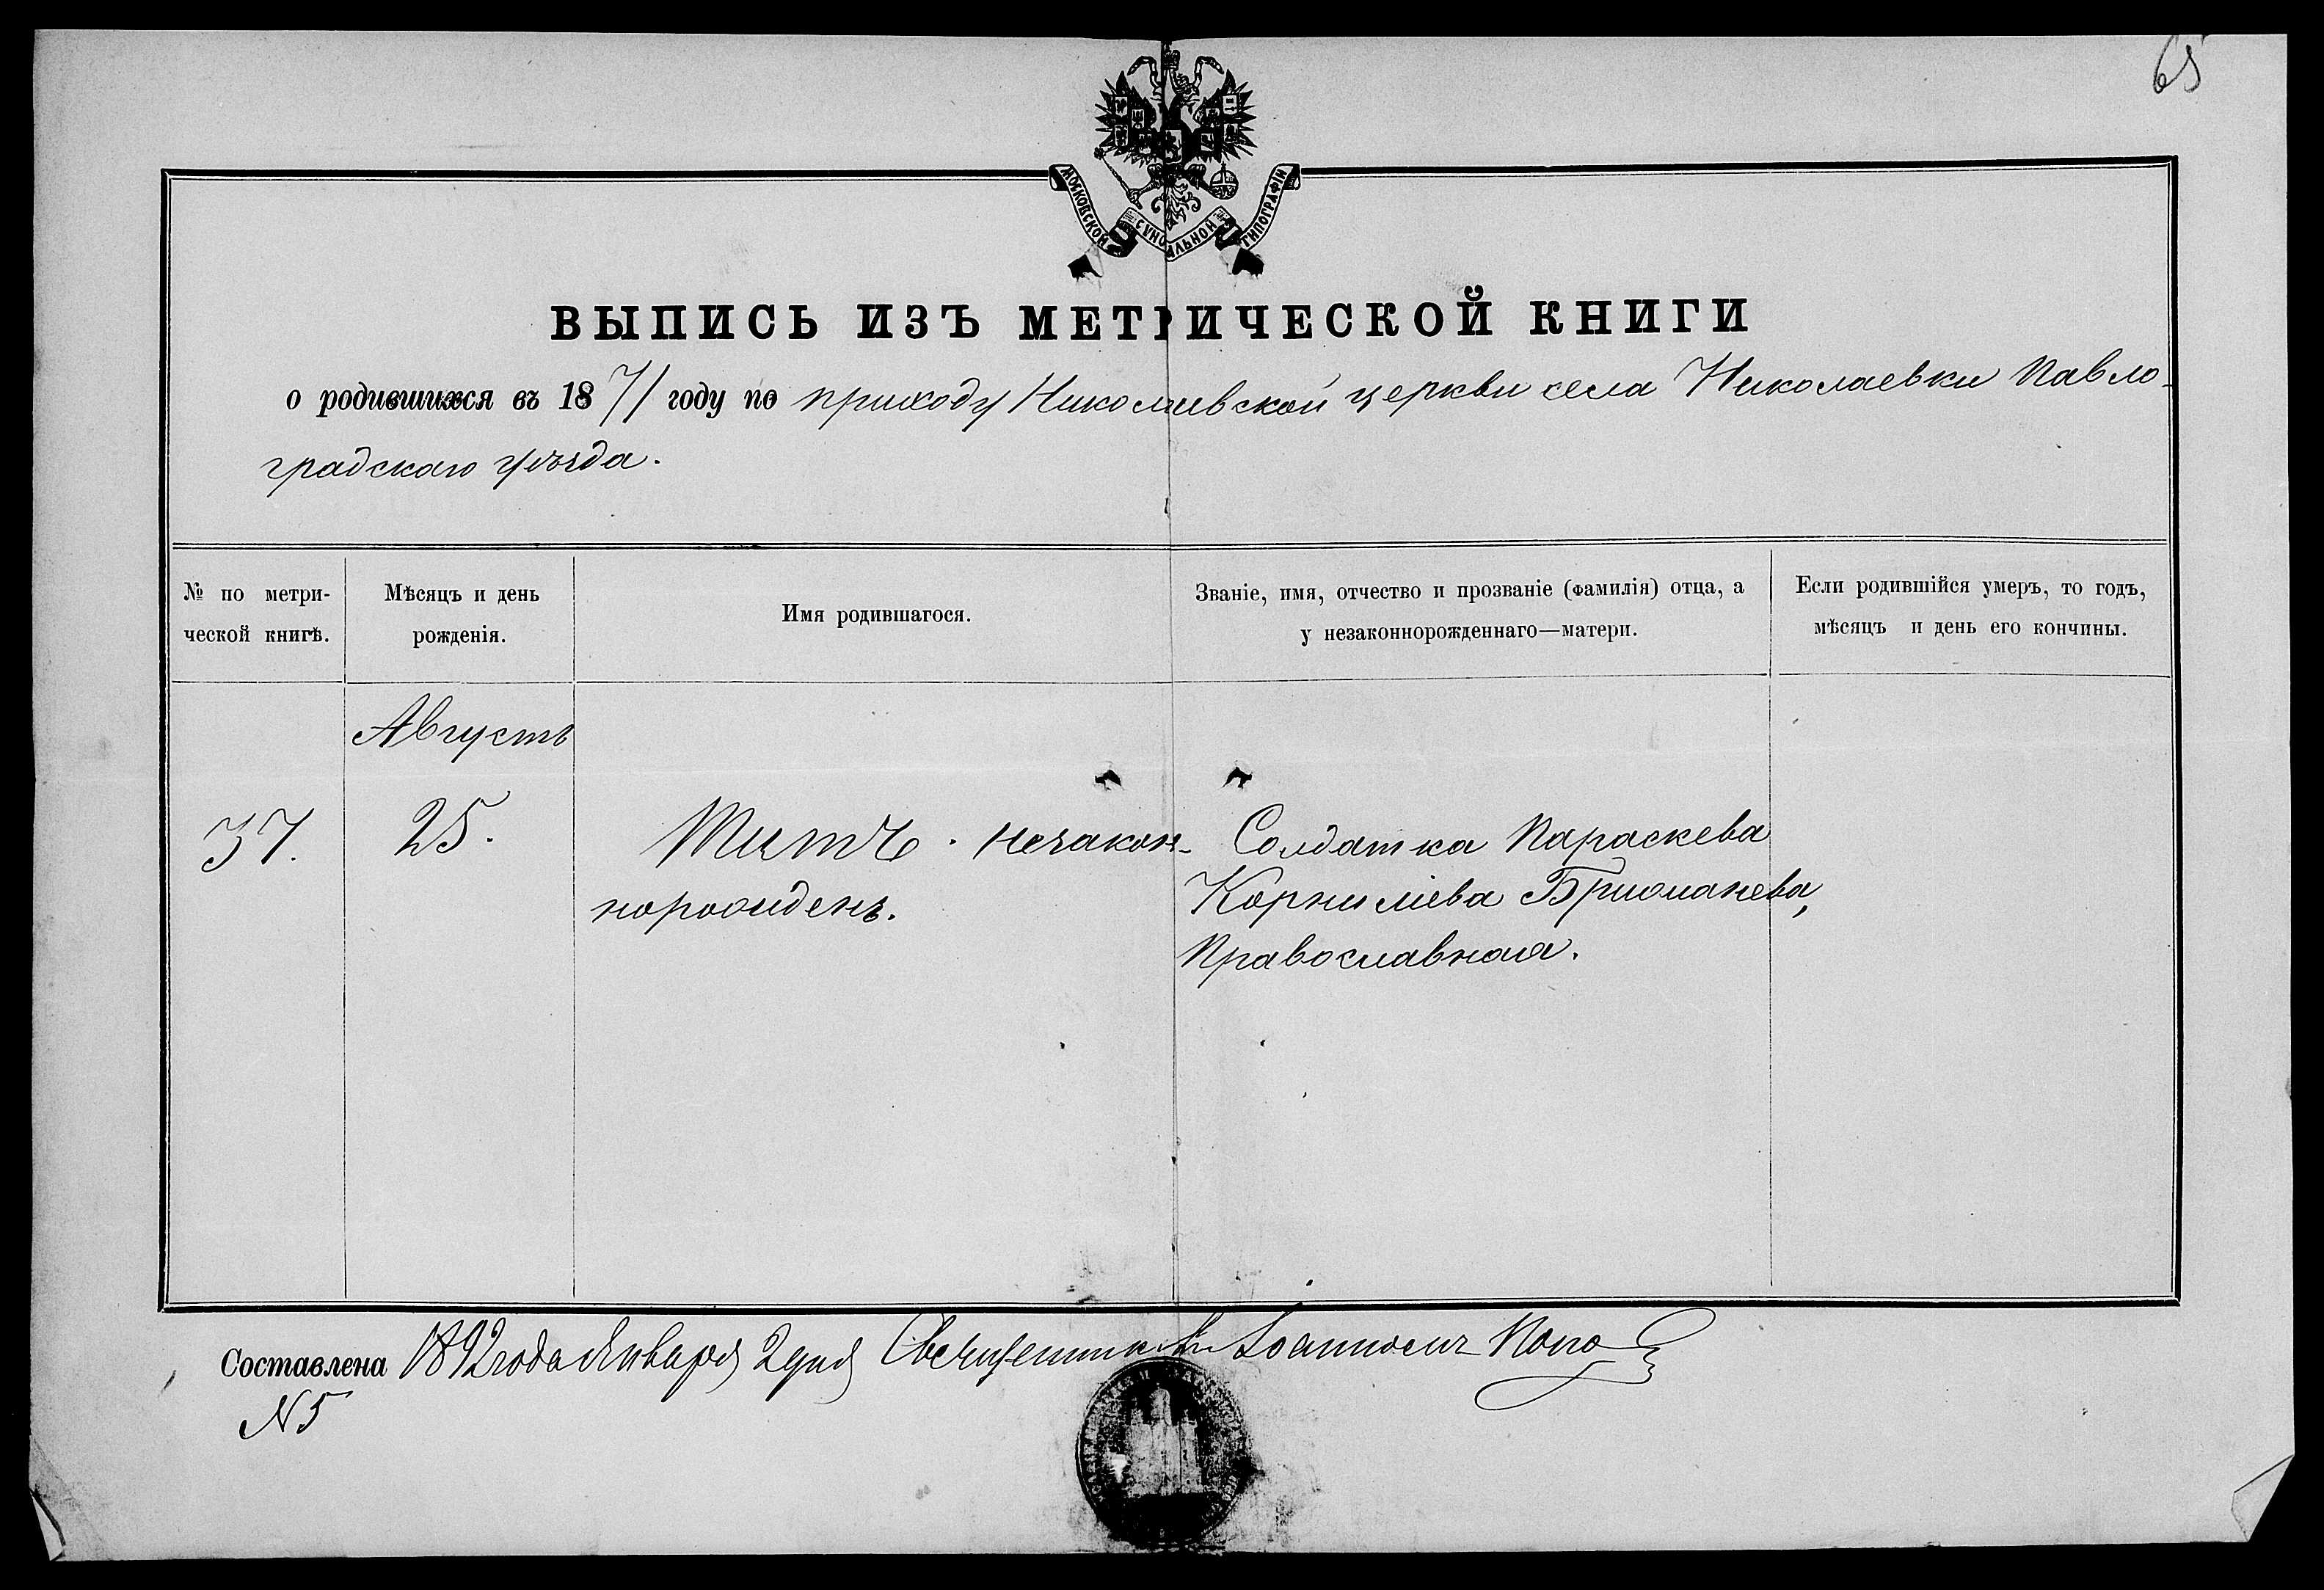 65
МОСКОВСКОЙ СѴНОДАЛЬНОЙ ТИПОГРАФІИ
ВЫПИСЬ ИЗЪ МЕТРИЧЕСКОЙ КНИГИ
о родившихся въ 1871 году по приходу Николаевской церкви села Николаевки Павло-
градскаго уѣзда.
№ по метри-
ческой книгѣ.
Мѣсяцъ и день
рожденія.
Имя родившагося.
Званіе, имя, отчество и прозваніе (фамилія) отца, а
у незаконнорожденнаго—матери.
Если родившійся умеръ, то годъ,
мѣсяцъ и день его кончины.
Августъ
37.
25.
Титъ. незакон-
норожденъ.
Солдатка Параскева
Корниліева
Православная.
Составлена 1892 года Января 2 дня Священникъ Іоанн
N 5